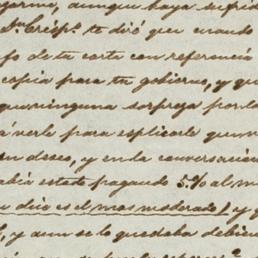 aunque haya sufrid
Dn Crisp.º te diré que cuando
fo de tu carta con referencia
copia para tu gobierno, y qu
que ninguna sorpresa por la
á verle para esplicarle que n
en deseo, y en la conversación
abia estado pagando 5% al m
e dice es el mas moderado! y y
y aun se lo quedaba debien